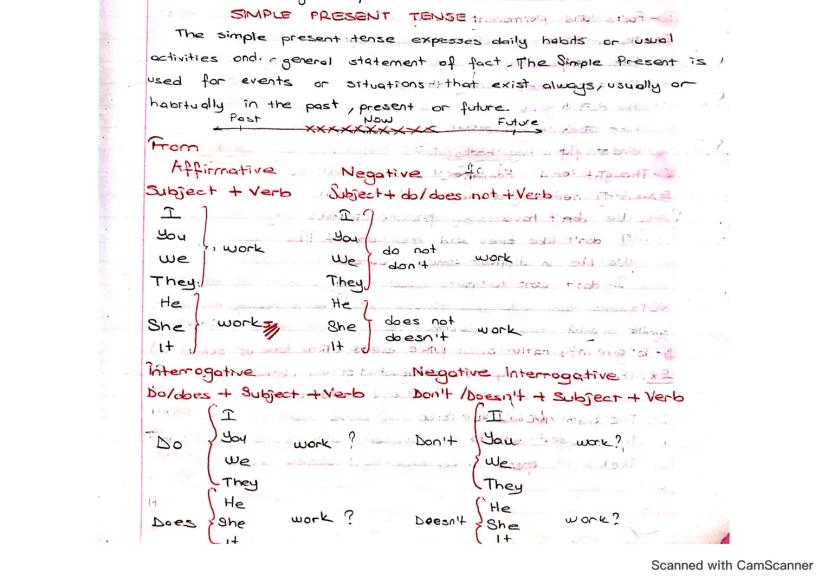 SIMPLE PRESENT TENSE:
The simple present tense expesses daily habits or usual
activities and general statement of fact. The Simple Present is
used for events or situations that exist always, usually or
habitually in the past, present or future.
Past Now Future
From
Affirmative
Subject + Verb
I
You
We
They
work
He
She
It
work
Negative
Subject + do/does not + Verb
I
You
We
They
do not
don't
work
He
She
It
does not
doesn't
work
Interrogative
Do/does + Subject + Verb
Do
I
You
We
They
work ?
Does
He
She
It
work ?
Negative Interrogative
Don't /Doesn't + Subject + Verb
Don't
I
You
We
They
work?
Doesn't
He
She
It
work?
Scanned with CamScanner